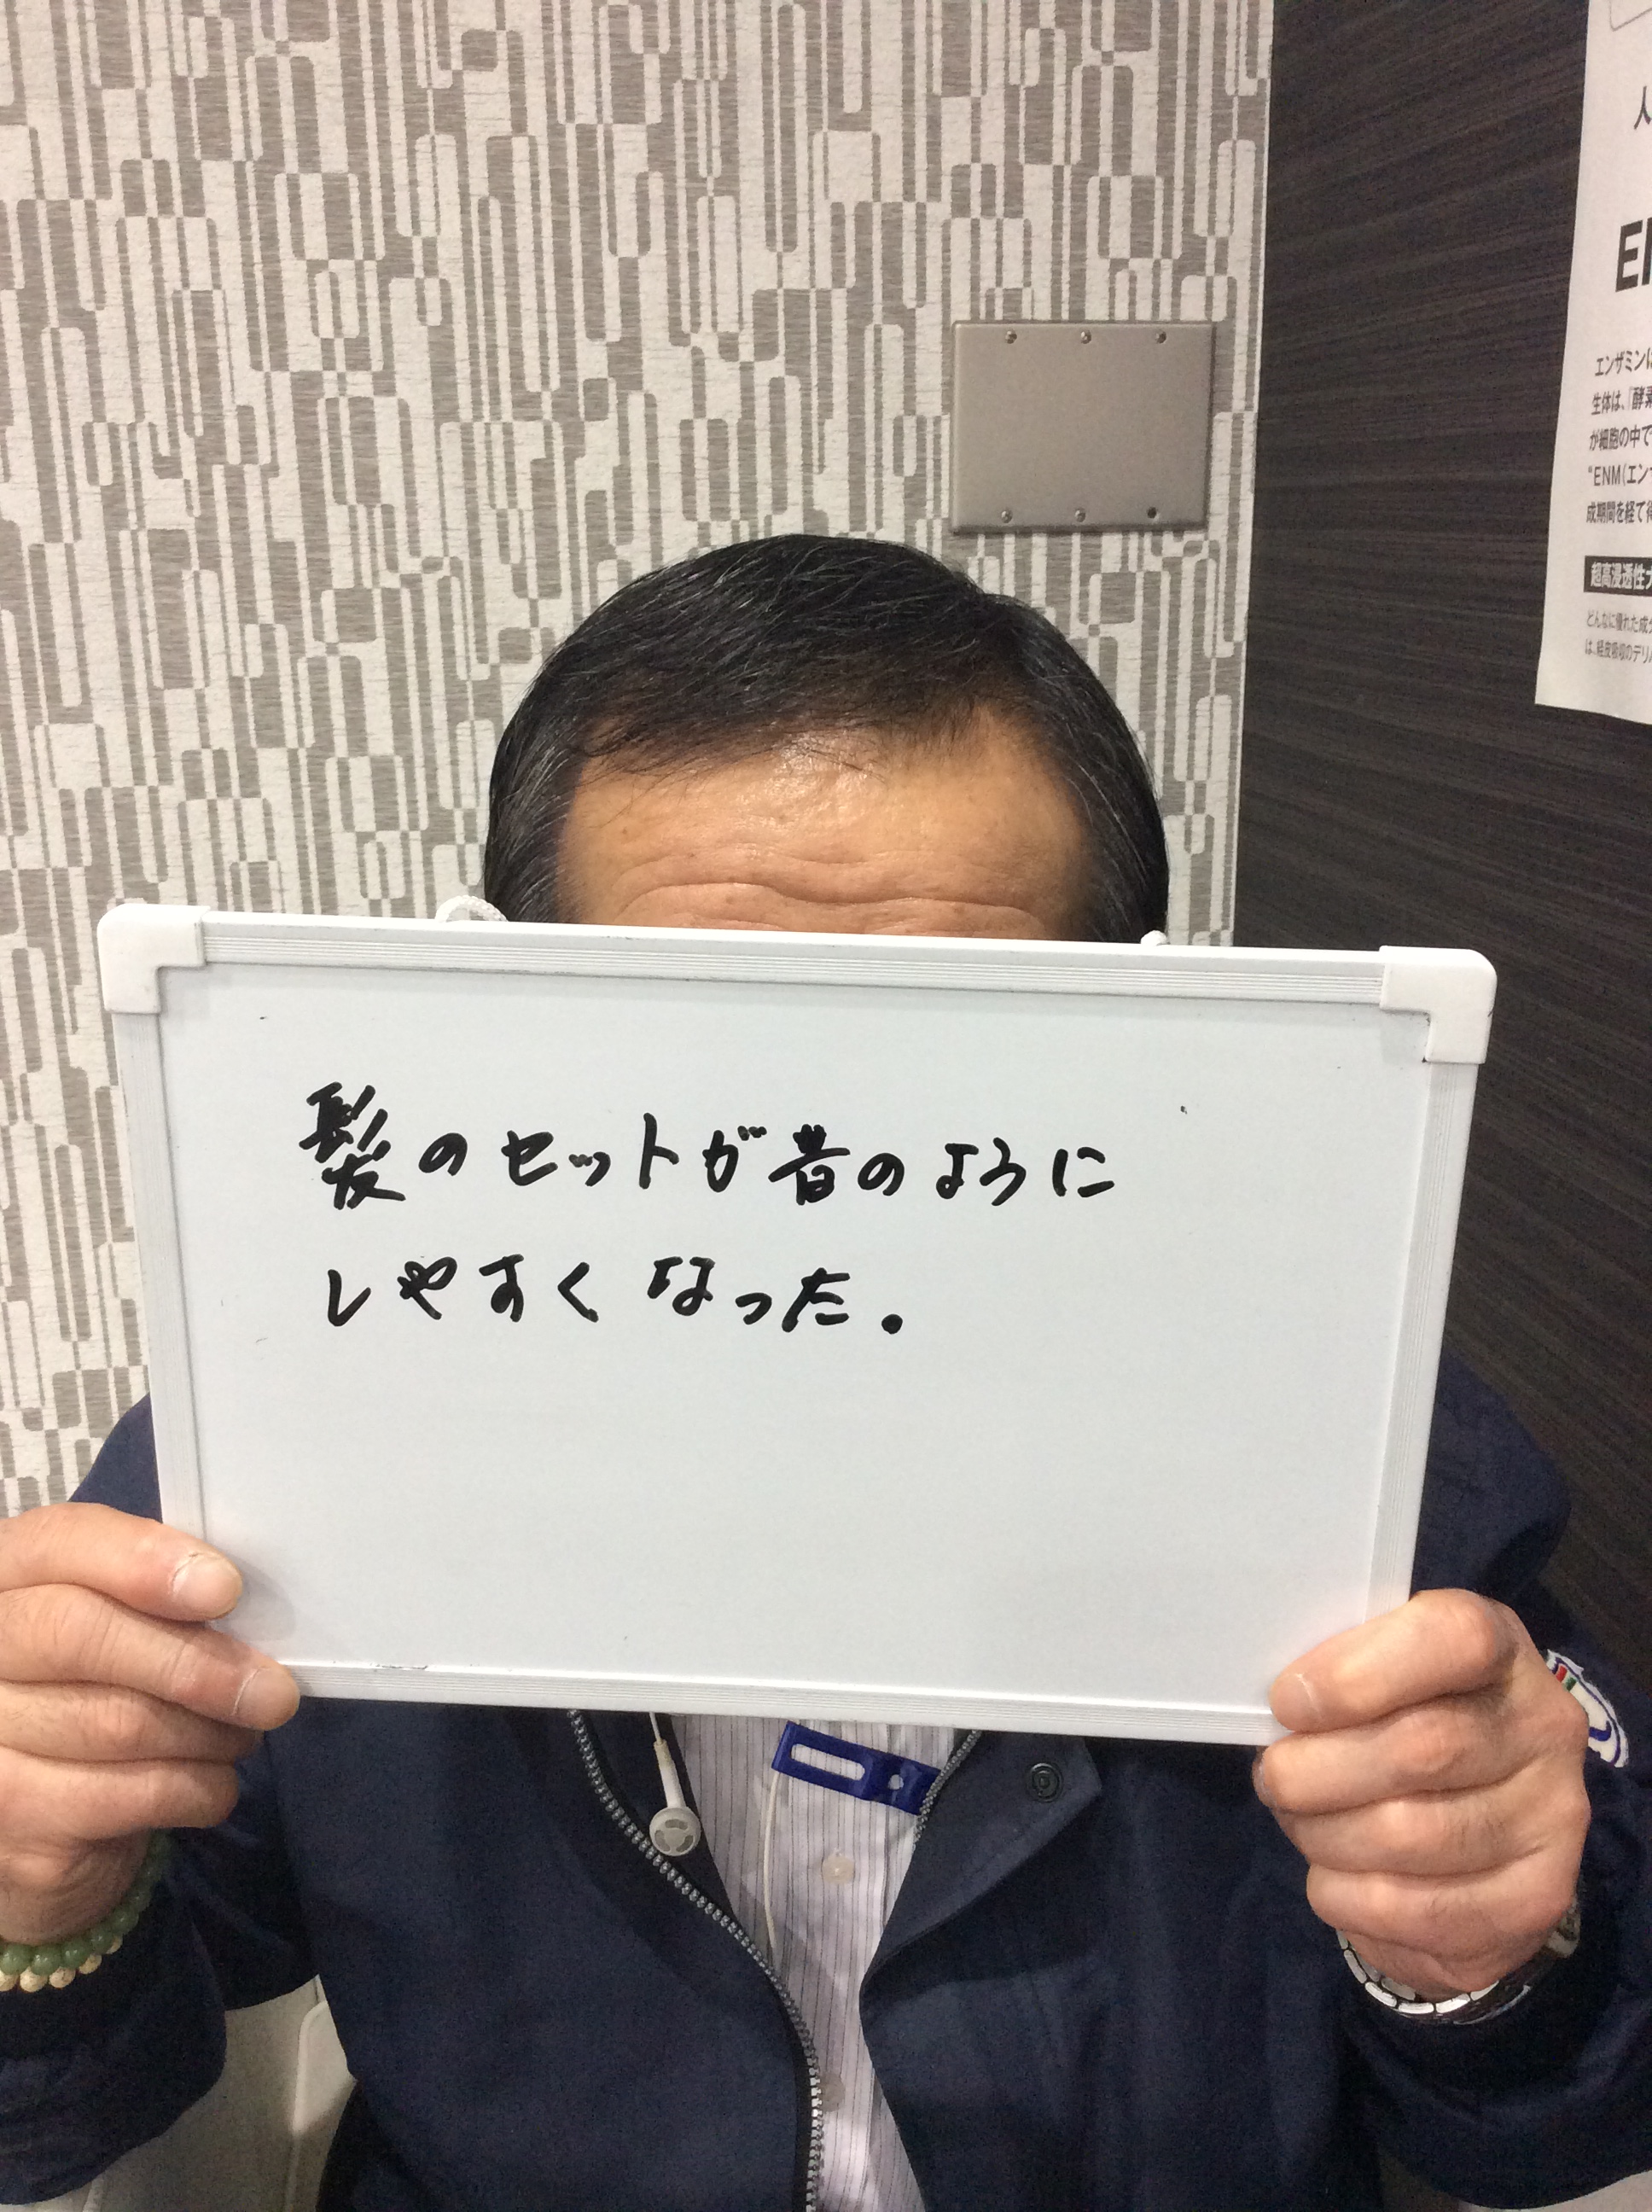 髪のセットが昔のように
しやすくなった。
人
エンザミン
生体は、「酵素
が細胞の中で
"ENM(エン
成期間を経て
超高浸透性
どんなに優れた成
は、経皮吸収のデリ